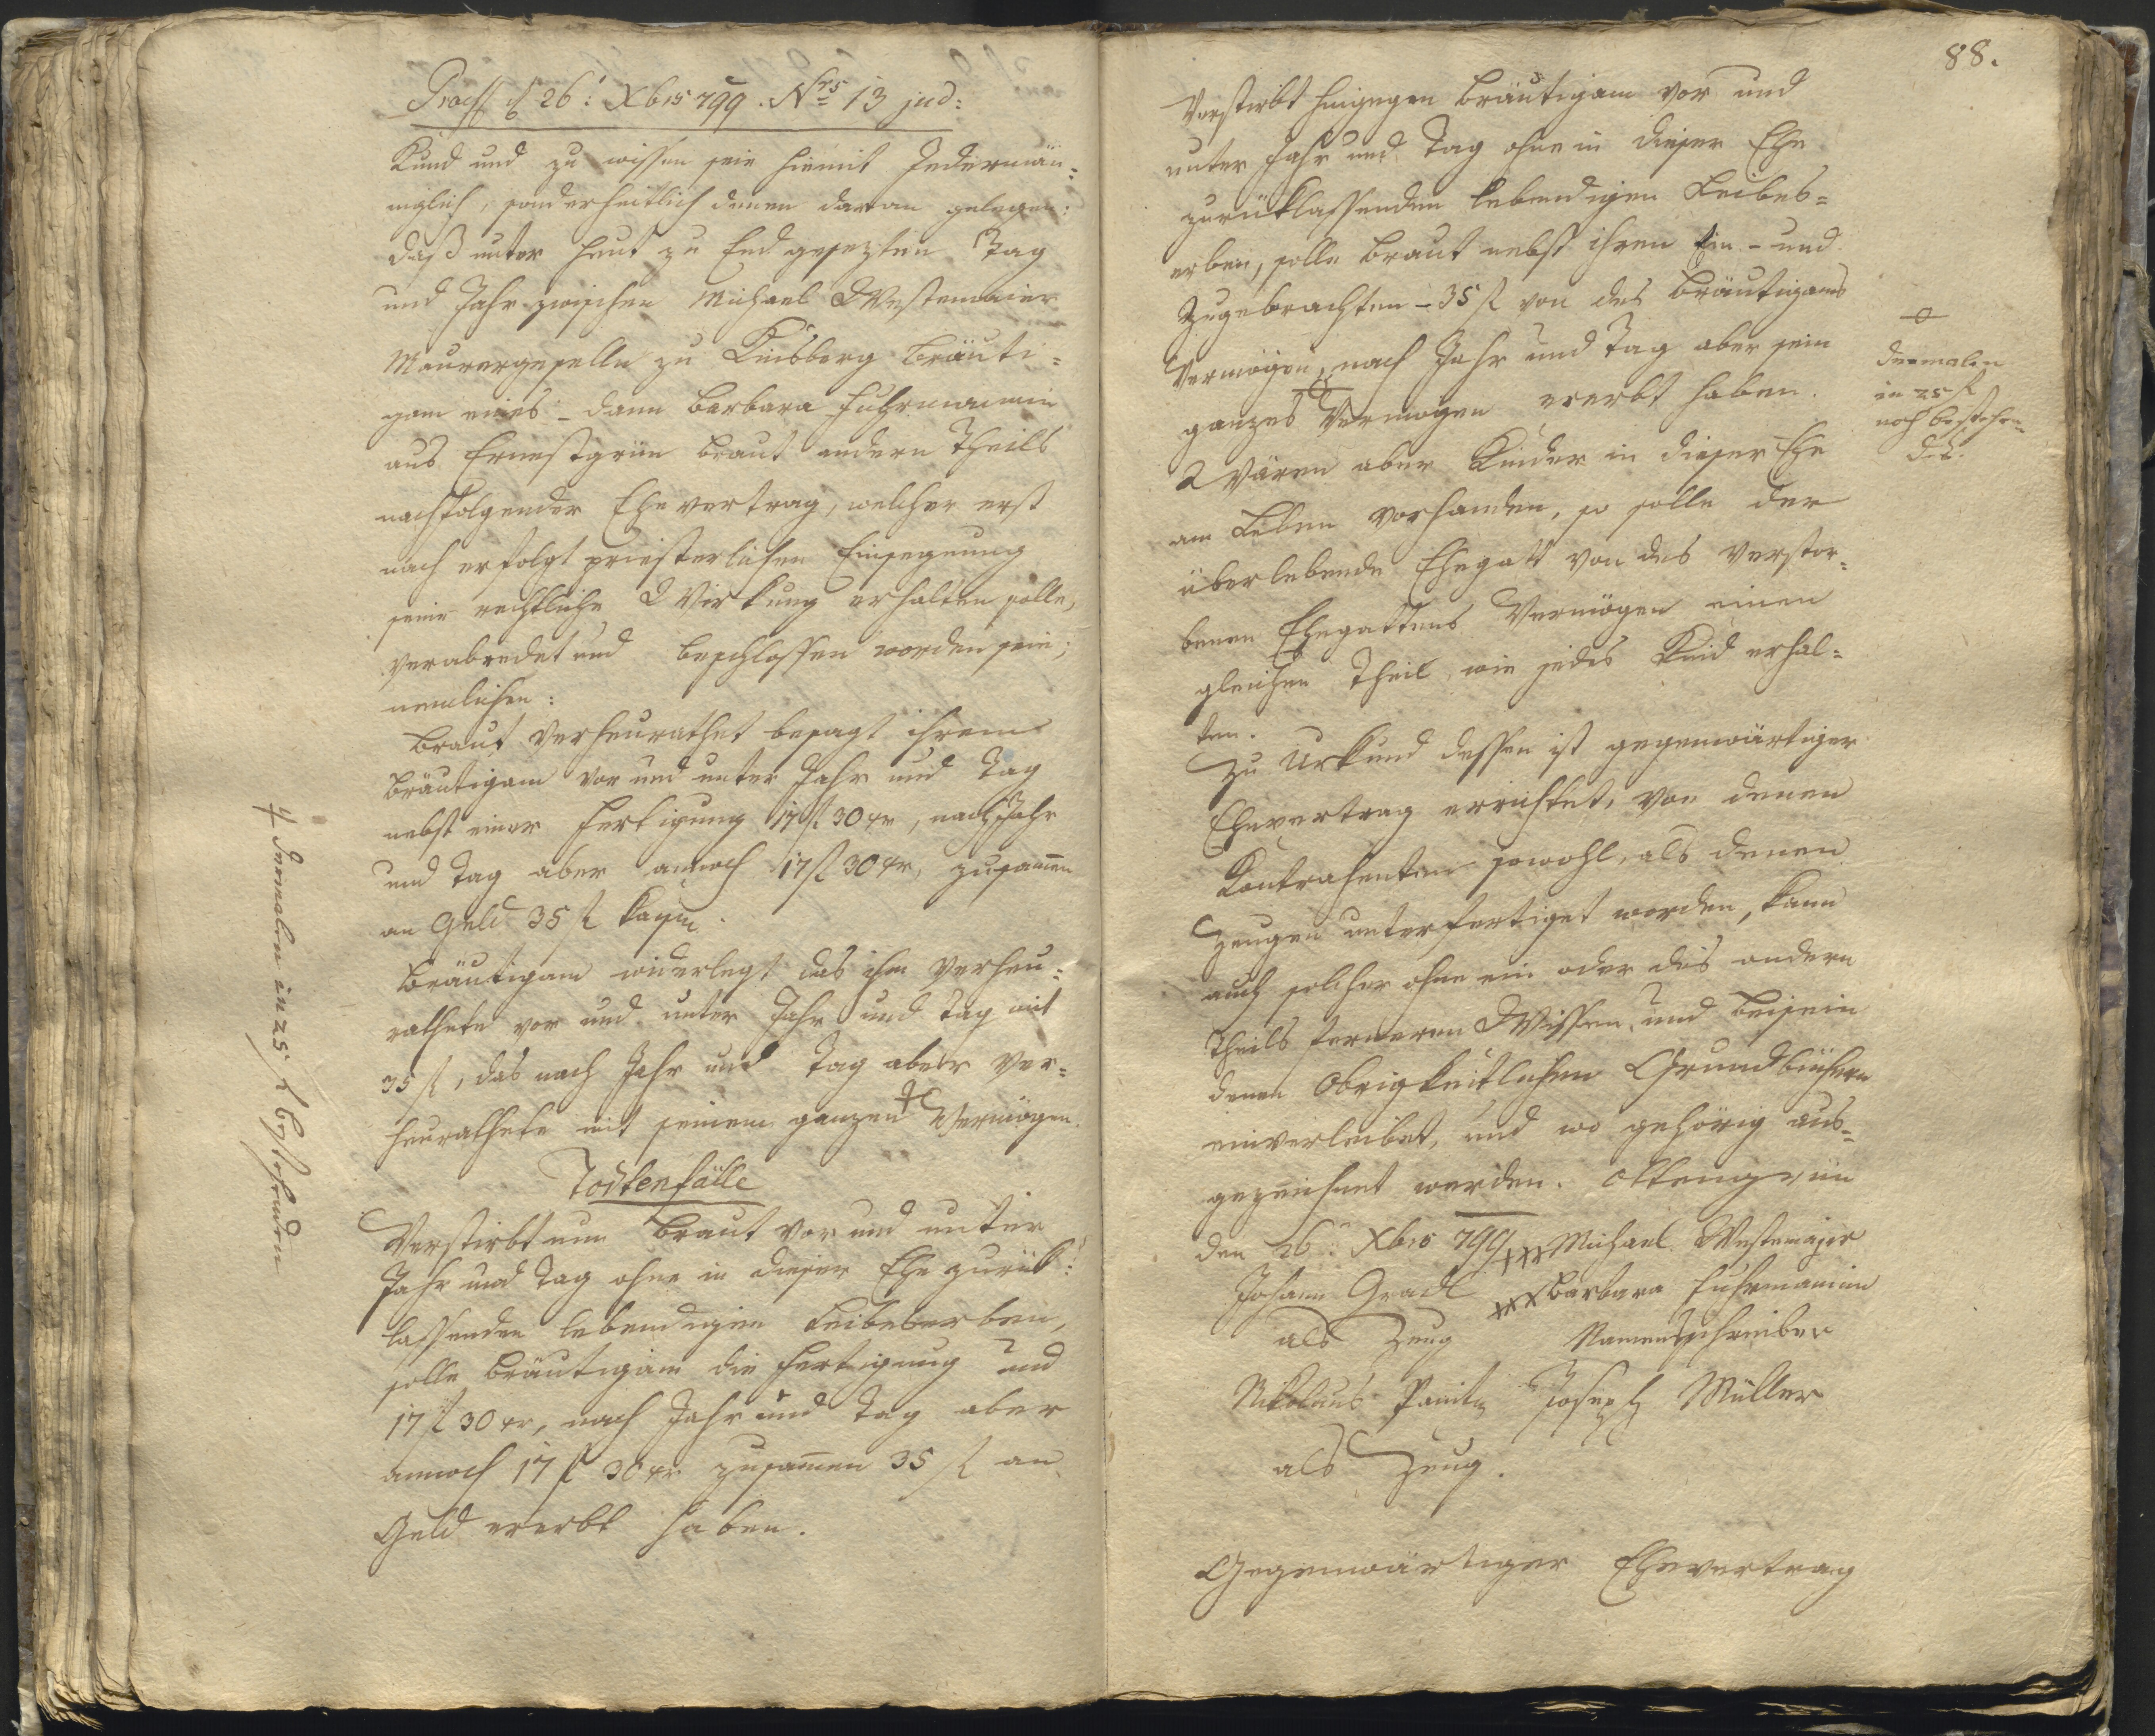 Praes. d 26: Xbris 799. Nrs 13 jud:
Kund und zu wissen seie hiemit Jedermän=
niglich, sonderheitlich denen daran gelegen:
daß unter heut zu End gesezten Tag
und Jahr zwischen Michael Westemaier
Maurergeselle zu Kinsberg Bräuti=
gam eines – dann Barbara Fuhrmannin
aus Ernestgrün Braut andern Theils
nachfolgender Ehevertrag, welcher erst
nach erfolgt priesterlichen Einsegnung
seine rechtliche Wirkung erhalten solle,
verabredet und beschlossen worden seie;
nemlichen:
Braut verheurathet besagt ihrem
Bräutigam vor und unter Jahr und Tag
nebst einer Fertigung 17 f 30 xr, nach Jahr
und Tag aber annoch 17 f 30 xr, zusammen
an Geld 35 f
Bräutigam widerlegt das ihm verheu=
rathete vor und unter Jahr und Tag mit
35 f, das nach Jahr und Tag aber ver=
heurathete mit seinem ganzen Vermögen.
Todtenfälle
Verstirbt nun Braut vor und unter
Jahr und Tag ohne in dieser Ehe zurük=
lassenden lebendigen Leibeserben,
solle Bräutigam die Fertigung und
17 f 30 xr, nach Jahr und Tag aber
annoch 17 f 30 xr zusammen 35 f an
Geld ererbt haben.
dermalen in 25 f bestehenden
88.
Verstirbt hingegen Bräutigam vor und
unter Jahr und Tag ohne in dieser Ehe
zurüklassenden lebendigen Leibes=
erben, solle Braut nebst ihren Ein- und
Zugebrachten – 35 f von des Bräutigams
Vermögen, nach Jahr und Tag aber sein
ganzes Vermögen ererbt haben.
Wären aber Kinder in dieser Ehe
am Leben vorhanden, so solle der
überlebende Ehegatt von des verstor=
benen Ehegattens Vermögen einen
gleichen Theil, wie jedes Kind erhal=
ten.
Zu Urkund dessen ist gegenwärtiger
Ehevertrag errichtet, von denen
Kontrahenten sowohl, als denen
Zeugen unterfertiget worden, kann
auch solcher ohne ein oder des andern
Theils ferneren Wissen, und Beisein
denen Obrigkeitlichen Grundbüchern
einverleibet, und wo gehörig aus=
gezeichnet werden. Ottengrün
den 26: Xbris 799 xxx Michael Westemajer
Johann Gradl xxx Barbara Fuhrmannin
als Zeug Namensschreiber
Nikolaus Joseph Müller
als Zeug.
Gegenwärtiger Ehevertrag
dermalen
in 25 f
noch bestehen=
des.